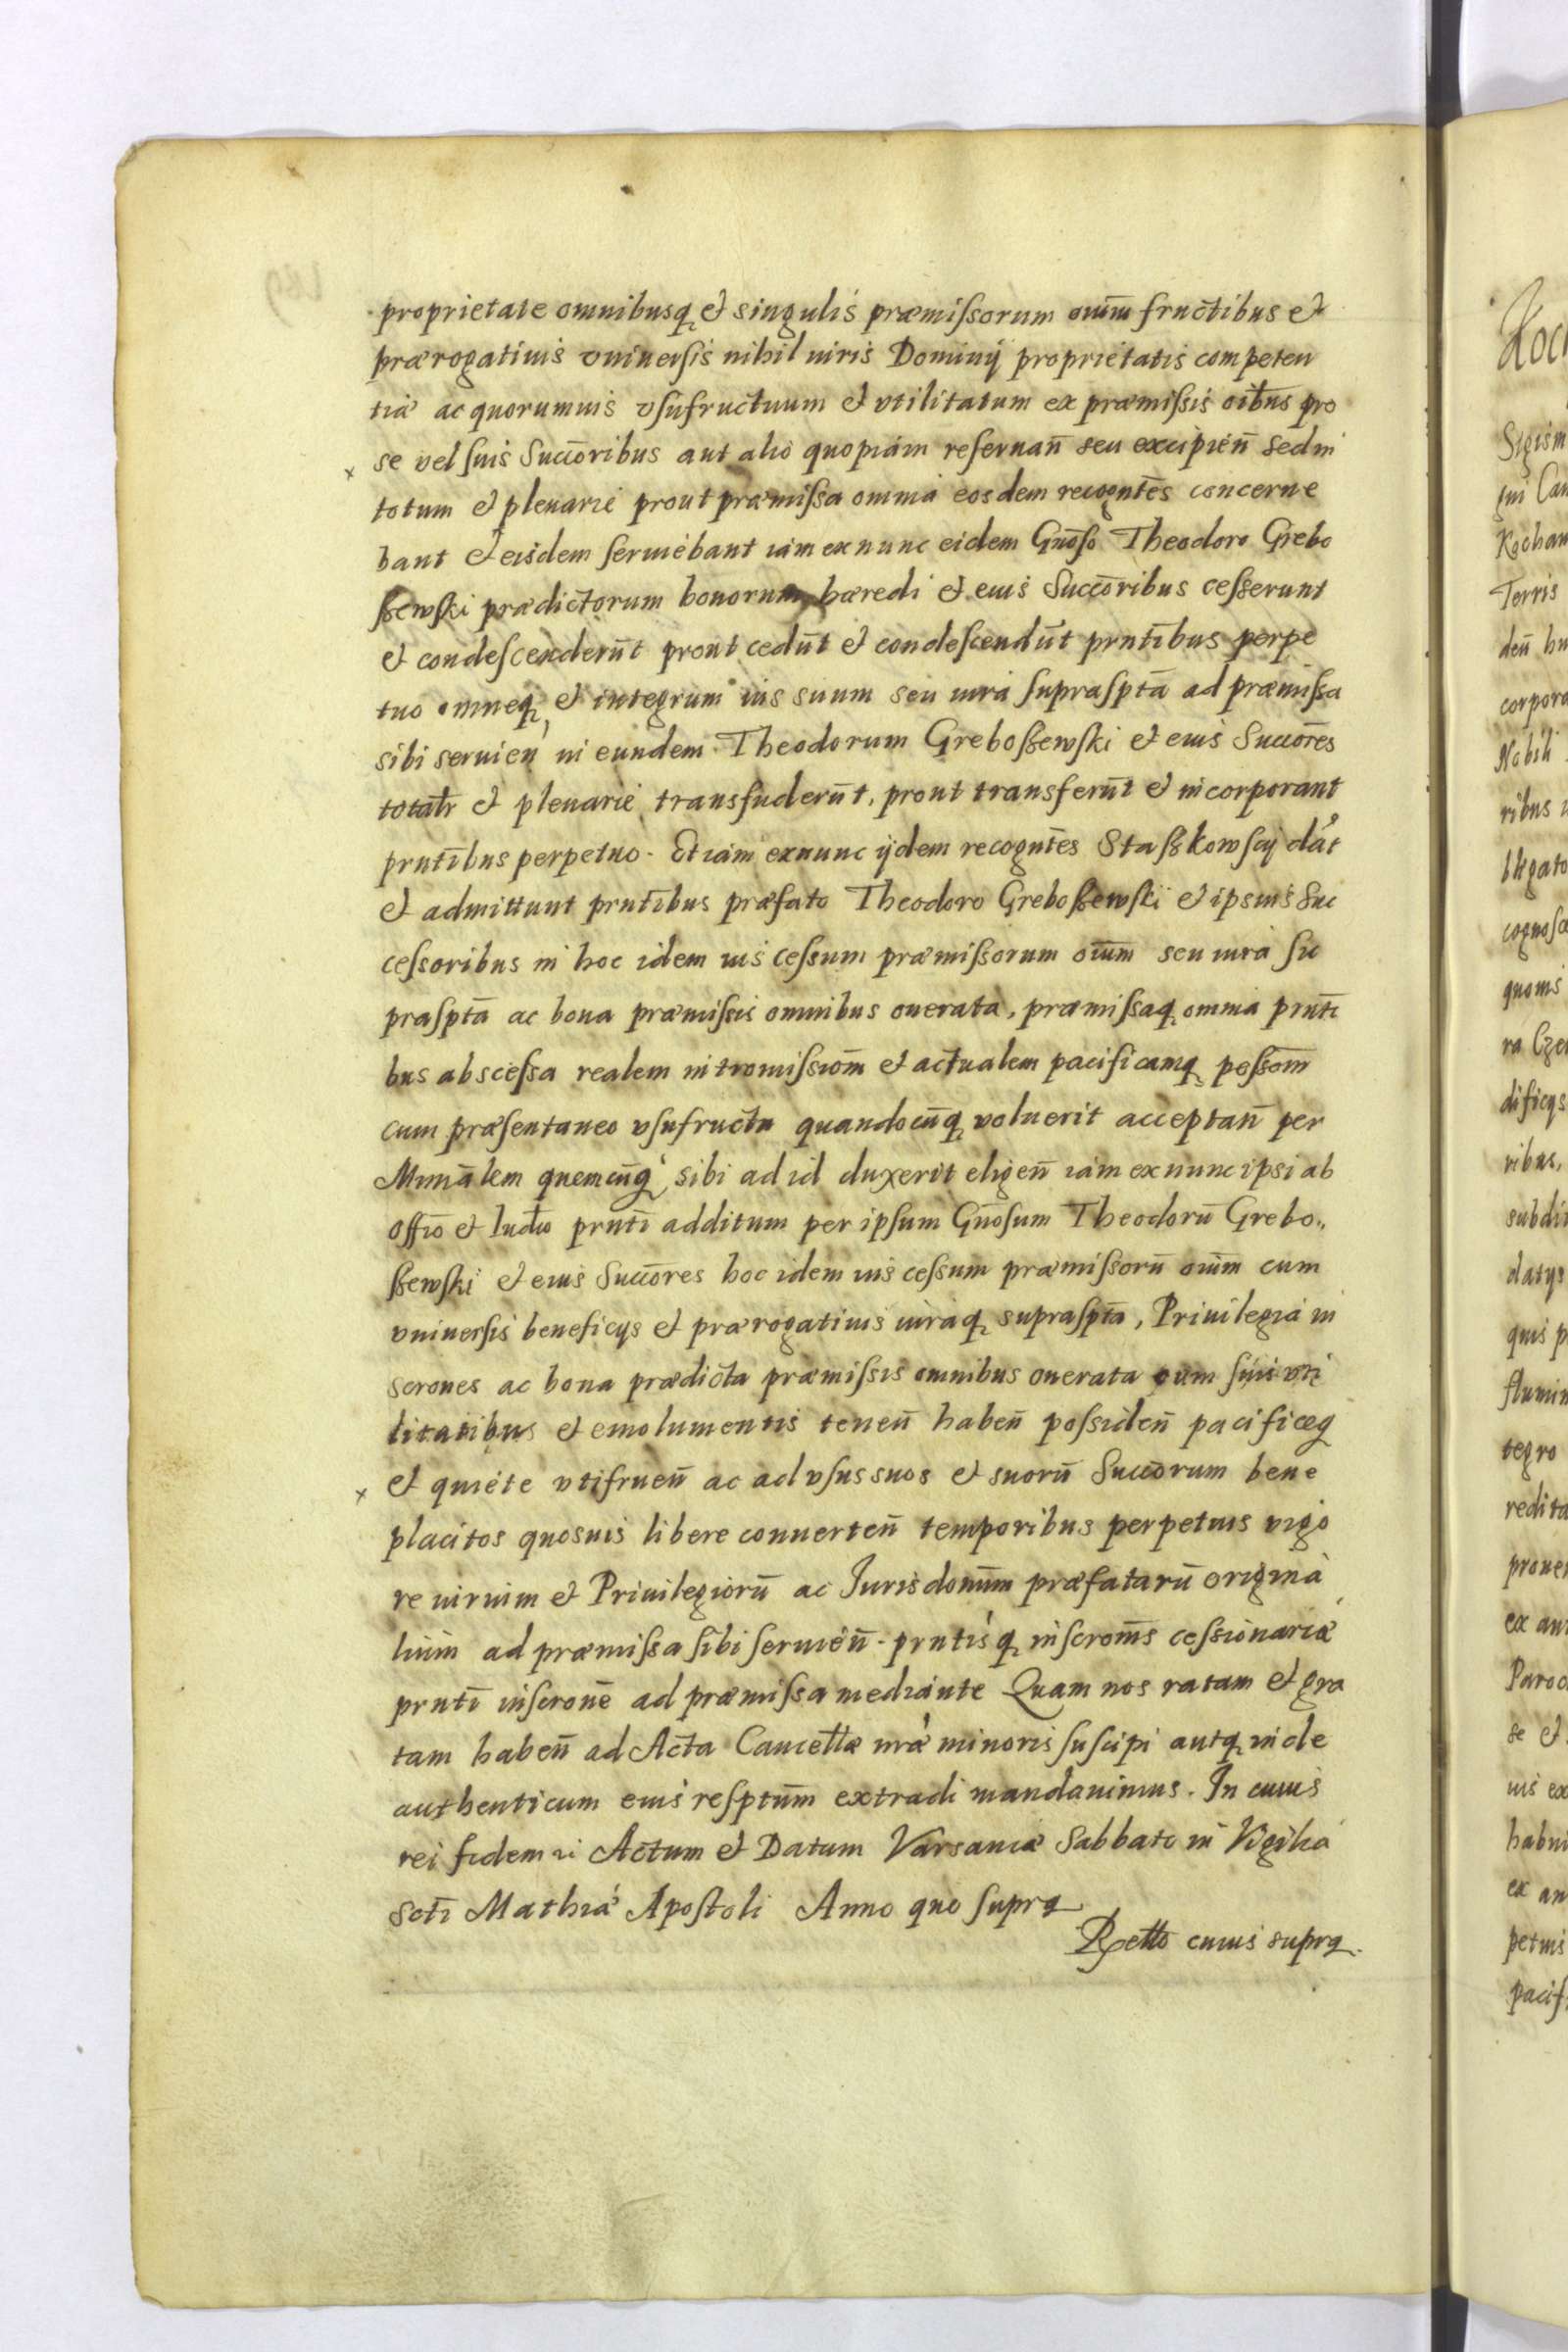 proprietate omnibusq, et singulis præmiſsorum om̄ium fructibus et
prærogatiuis vniuerſis nihil iuris Dominij proprietatis competen
tiæ ac quorumuis vſufructuum et vtilitatum ex præmiſsis oib̄us pro
se vel ſuis Succōribus aut alio quopiam reſeruan̄ seu excipien̄ sed in
totum et plenarie prout præmiſsa omnia eosdem recogn̄tes concerne
bant et eisdem ſeruiebant iam ex nunc eidem Gn̄oſo Theodoro Grebo
ſzewſki prædictorum bonorum hæredi et eius Succōribus ceſserunt
et condeſcenderūt prout cedūt et condeſcendūt prn̄tibus perpe
tuo omneq, et integrum ius suum seu iura ſupraſptā ad præmiſsa
sibi seruien̄ in eundem Theodorum Greboſzewſki et eius Succōres
totalr̄ et plenarie transfuderūt, prout transferūt et incorporant
prn̄tibus perpetuo. Et iam exnunc ijdem recogn̄tes Staſzkowſcij dāt
et admittunt prn̄tibus præfato Theodoro Greboſzewſki et ipsius Suc
ceſsoribus in hoc idem ius ceſsum præmiſsorum oīum seu iura ſu
praſptā ac bona præmiſsis omnibus onerata, præmiſsaq, omnia prn̄ti
bus absceſsa realem intromiſsiom̄ et actualem pacificamq, poſsōm
cum præſentaneo vſufructu quandocūq, voluerit acceptan̄ per
Minr̄alem quemcūq, sibi ad id duxerit eligen̄ iam ex nunc ipsi ab
offīo et Iudīo prn̄ti additum per ipſum Gn̄oſum Theodorū Grebo„
ſzewſki et eius Succōres hoc idem ius ceſsum præmiſsorū oīum cum
vniuerſis beneficijs et prærogatiuis iuraq, supraſptā, Priuilegia in
scrones ac bona prædicta præmiſsis omnibus onerata cum ſuis vti
litatibus et emolumentis tenen̄ haben̄ poſsiden̄ pacificeq
et quiete vtifruen̄ ac ad vſus suos et suorū Succōrum bene
placitos quosuis libere conuerten̄ temporibus perpetuis vigo
re iurium et Priuilegiorū ac Iurisdonūm præfatarū origina
lium ad præmiſsa ſibi ſeruien̄. prn̄tisq, inſcrom̄s ceſsionariæ
prn̄ti inſcronē ad præmiſsa mediante Quam nos ratam et gra
tam haben̄ ad Acta Cancellæ nr̄æ minoris ſuſcipi autq, inde
authenticum eius reſptūm extradi mandauimus. In cuius
rei fidem Actum et Datum Varsauiæ Sabbato in Vigilia
Sctī Mathiæ Apoſtoli Anno quo ſupra
Rx̄ello cuius supra.
Koch
Sigism
gni Can
Kochan
Terris
den̄ hu
corpora
Nobili
ribus
bligato
cognoſc
quouis
ra Cze
dificijs
ribus,
subdi
datijs
quis p
flumin
tegro
redita
prouen
ex an
Paroc
se et
uis ex
habui
ex an
petuis
pacif